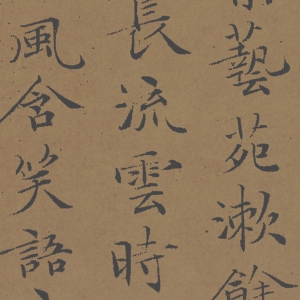 藝苑漱餘
長流雲時
風含笑語